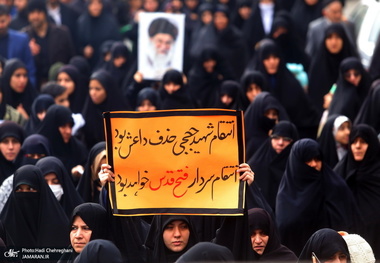 انتقام شهید حججی حذف داعش بود
انتقام سردار فتح قدس خواهد بود
Photo:Hadi Chehreghani
JAMARAN.IR